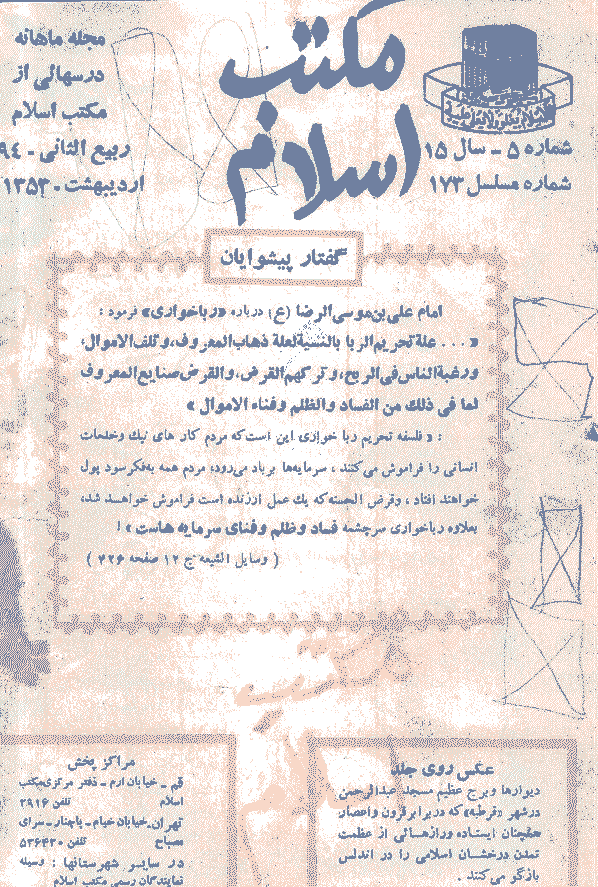 مکتب اسلام
مجله ماهانه
درسهائی از
مکتب اسلام
ربیع الثانی - ۹۴
اردیبهشت - ۱۳۵۳
شماره ۵ - سال ۱۵
شماره مسلسل ۱۷۳
گفتار پیشوایان
امام علی بن موسی الرضا (ع) درباره «رباخواری» فرمود :
« ... علة تحریم الربا بالنسیة لعلة ذهاب المعروف، وتلف الاموال،
ورغبة الناس فی الربح، وترکهم القرض، والقرض صنایع المعروف
لما فی ذلك من الفساد والظلم وفناء الاموال »
: « فلسفه تحریم ربا خواری این است که مردم کار های نیك وخدمات
انسانی را فراموش می کنند ، سرمایه‌ها برباد می‌رود، مردم همه به‌فکر سود پول
خواهند افتاد ، وقرض الحسنه که یك عمل ارزنده است فراموش خواهد شد،
بعلاوه رباخواری سرچشمه فساد وظلم وفنای سرمایه هاست » !
( وسایل الشیعه ج ۱۲ صفحه ۴۲۶ )
عکس روی جلد
دیوارها وبرج عظیم مسجد عبدالرحمن
درشهر «قرطبه» که در برابر قرون واعصار
همچنان ایستاده ورازهائی از عظمت
تمدن درخشان اسلامی را در اندلس
بازگو می کنند .
مراکز پخش
قم - خیابان ارم - دفتر مرکزی مکتب
اسلام تلفن ۲۹۱۶
تهران. خیابان خیام - پاچنار - سرای
مصباح تلفن ۵۳۶۴۳۰
در سایر شهرستانها : وسیله
نمایندگان رسمی مکتب اسلام